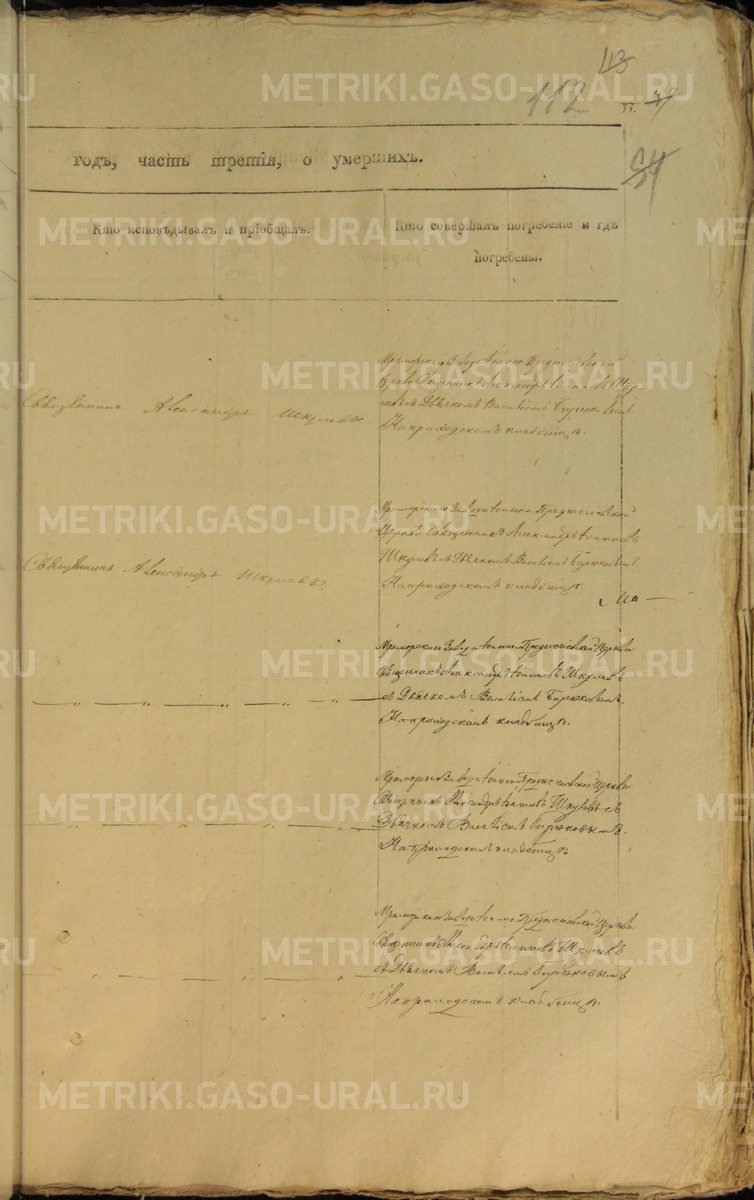 43
112
годъ, часть третія, о умершихъ.
54
Кто исповѣдывалъ и пріобщалъ.
Кто совершалъ погребеніе и гдѣ
погребены.
Священникъ Александръ Шкулевъ.
Мраморскаго Завода Іоанно Предтечевской
Церкви Священникъ Александръ Іоанновъ Шку
левъ съ Дьячкомъ Василіемъ Бирюковымъ
На приходскомъ кладбищѣ.
Священникъ Александръ Шкулевъ.
Мраморскаго Завода Іоанно Предтечевской
Церкви Священникъ Александръ Іоанновъ
Шкулевъ съ Дьячкомъ Василіемъ Бирюковымъ
На приходскомъ кладбищѣ.
Мраморскаго Завода Іоанно Предтечевской Церкви
Священникъ Александръ Іоанновъ Шкулевъ
съ Дьячкомъ Василіемъ Бирюковымъ.
На приходскомъ кладбищѣ.
Мраморскаго Завода Іоанно Предтечевской Церкви
Священникъ Александръ Іоанновъ Шкулевъ съ
Дьячкомъ Василіемъ Бирюковымъ.
На приходскомъ кладбищѣ
Мраморскаго Завода Іоанно Предтечевской Церкви
Священникъ Александръ Іоанновъ Шкулевъ
съ Дьячкомъ Василіемъ Бирюковымъ
На приходскомъ кладбищѣ.
METRIKI.GASO-URAL.RU